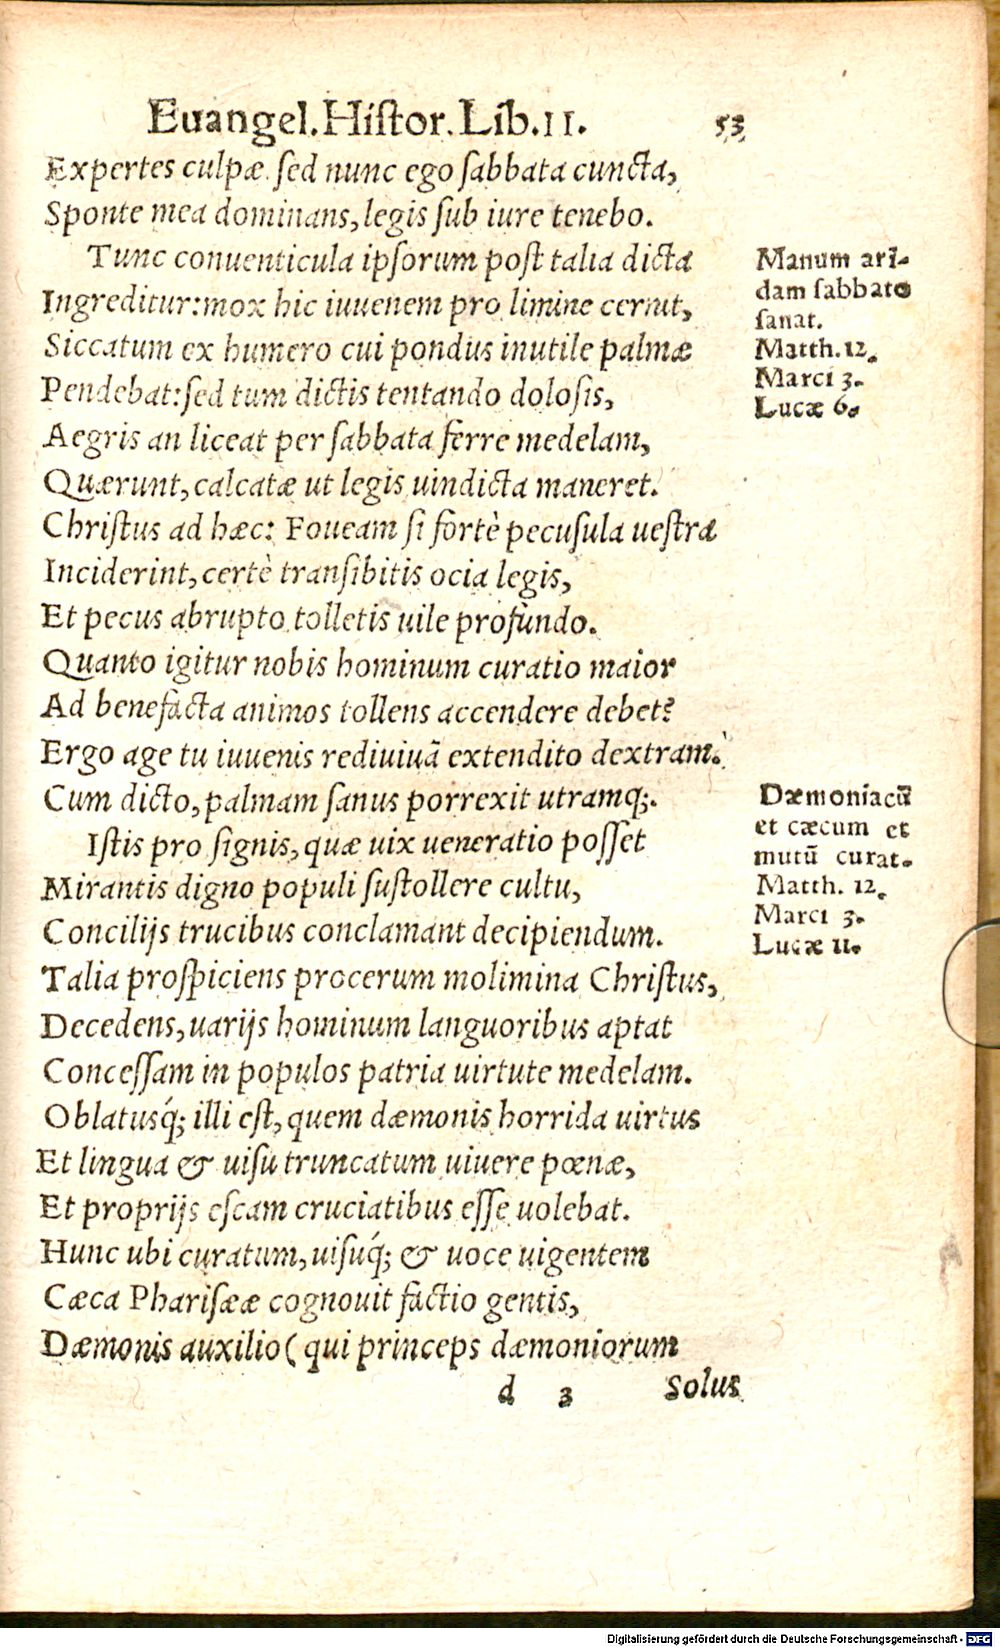 Euangel. Histor. Lib. II. 53
Expertes culpæ. sed nunc ego sabbata cuncta,
Sponte mea dominans, legis sub iure tenebo.
Tunc conuenticula ipsorum post talia dicta
Ingreditur: mox hic iuuenem pro limine cernit,
Siccatum ex humero cui pondus inutile palmæ
Pendebat: sed tum dictis tentando dolosis,
Aegris an liceat per sabbata ferre medelam,
Quærunt, calcatæ ut legis uindicta maneret.
Christus ad hæc: Foueam si fortè pecusula uestræ
Inciderint, certè transibitis ocia legis,
Et pecus abrupto tolletis uile profundo.
Quanto igitur nobis hominum curatio maior
Ad benefacta animos tollens accendere debet?
Ergo age tu iuuenis rediuiuã extendito dextram.
Cum dicto, palmam sanus porrexit utramq;.
Istis pro signis, quæ uix ueneratio posset
Mirantis digno populi sustollere cultu,
Concilijs trucibus conclamant decipiendum.
Talia prospiciens procerum molimina Christus,
Decedens, uarijs hominum languoribus aptat
Concessam in populos patria uirtute medelam.
Oblatusq́; illi est, quem dæmonis horrida uirtus
Et lingua & uisu truncatum uiuere pœnæ,
Et proprijs escam cruciatibus esse uolebat.
Hunc ubi curatum, uisuq́; & uoce uigentem
Cæca Pharisææ cognouit factio gentis,
Dæmonis auxilio (qui princeps dæmoniorum
d 3 Solus
Manum ari-
dam sabbato
sanat.
Matth. 12.
Marci 3.
Lucæ 6.
Dæmoniacũ
et cæcum et
mutũ curat.
Matth. 12.
Marci 3.
Lucæ 11.
Digitalisierung gefördert durch die Deutsche Forschungsgemeinschaft - DFG